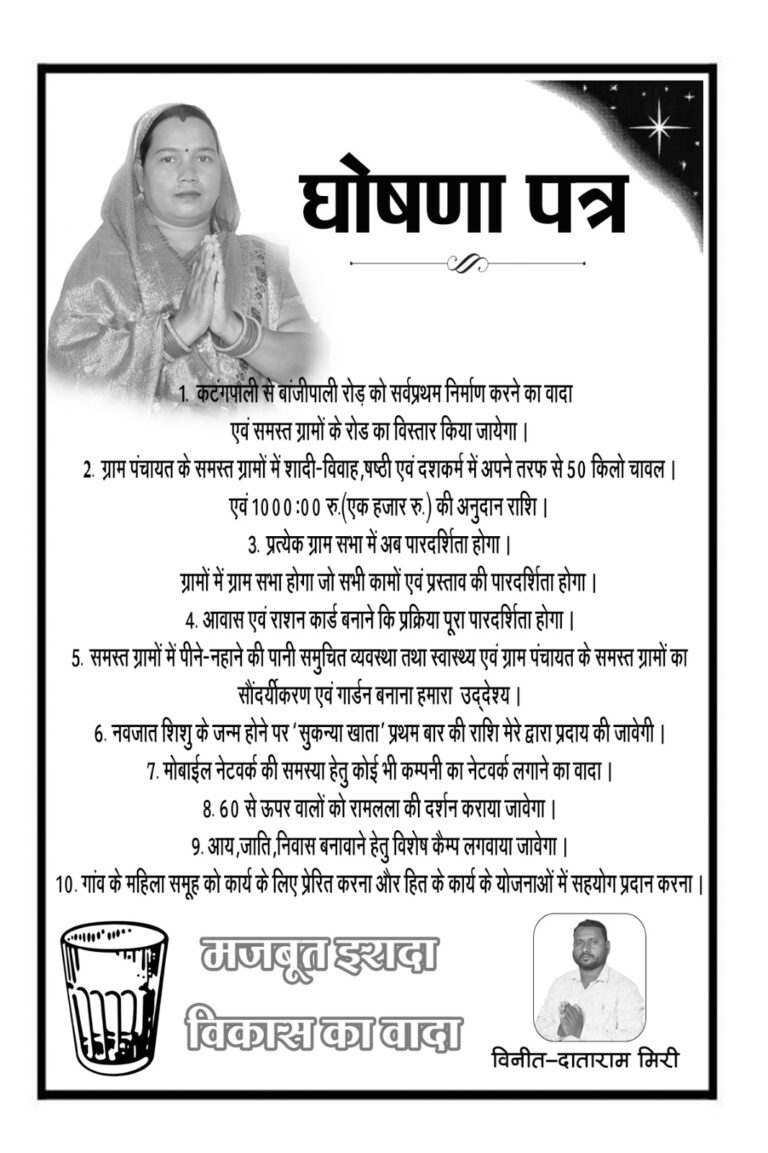 घोषणा पत्र
1. कटंगपाली से बांजीपाली रोड़ को सर्वप्रथम निर्माण करने का वादा
एवं समस्त ग्रामों के रोड का विस्तार किया जायेगा।
2. ग्राम पंचायत के समस्त ग्रामों में शादी-विवाह,षष्ठी एवं दशकर्म में अपने तरफ से 50 किलो चावल।
एवं 1000:00 रु.(एक हजार रु.) की अनुदान राशि।
3. प्रत्येक ग्राम सभा में अब पारदर्शिता होगा।
ग्रामों में ग्राम सभा होगा जो सभी कामों एवं प्रस्ताव की पारदर्शिता होगा।
4. आवास एवं राशन कार्ड बनाने कि प्रक्रिया पूरा पारदर्शिता होगा।
5. समस्त ग्रामों में पीने-नहाने की पानी समुचित व्यवस्था तथा स्वास्थ्य एवं ग्राम पंचायत के समस्त ग्रामों का
सौंदर्यीकरण एवं गार्डन बनाना हमारा उद्देश्य।
6. नवजात शिशु के जन्म होने पर ‘सुकन्या खाता’ प्रथम बार की राशि मेरे द्वारा प्रदाय की जावेगी।
7. मोबाईल नेटवर्क की समस्या हेतु कोई भी कम्पनी का नेटवर्क लगाने का वादा।
8. 60 से ऊपर वालों को रामलला की दर्शन कराया जावेगा।
9. आय,जाति,निवास बनावाने हेतु विशेष कैम्प लगवाया जावेगा।
10. गांव के महिला समूह को कार्य के लिए प्रेरित करना और हित के कार्य के योजनाओं में सहयोग प्रदान करना।
मजबूत इरादा
विकास का वादा
विनीत-दाताराम मिरी